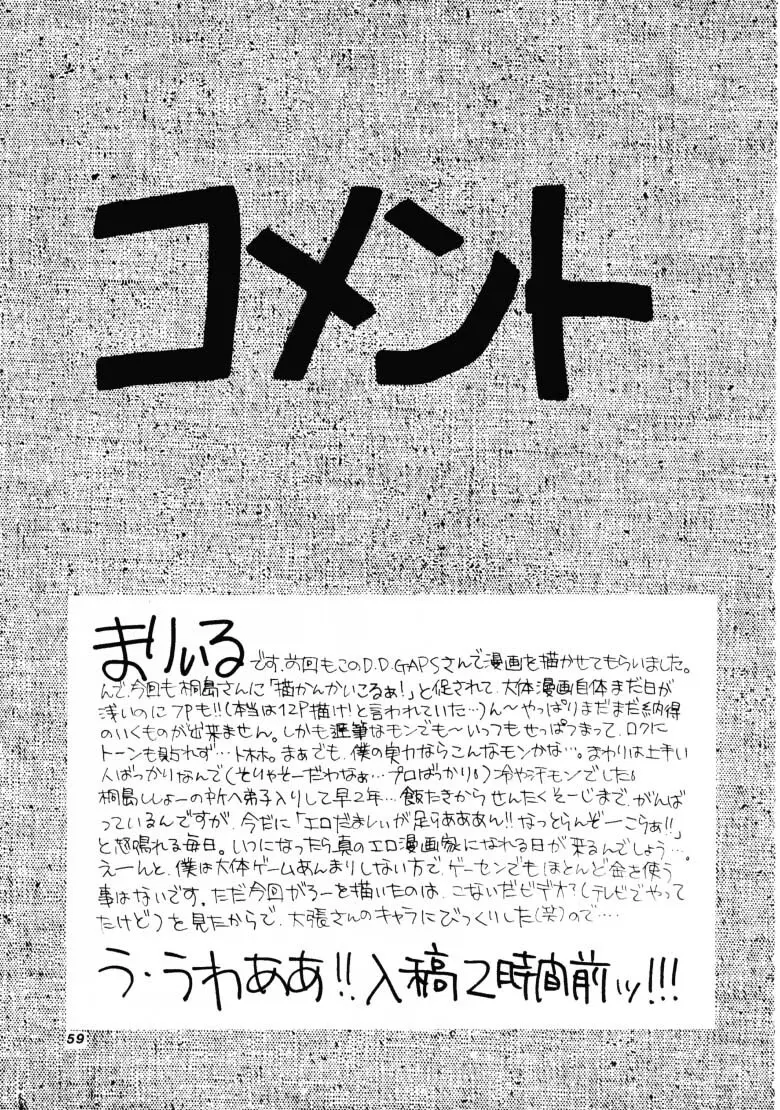 コメント
まりいるです。前回もこのD.D.GAPSさんで漫画を描かせてもらいました。
んで、今回も桐島さんに「描かんかいこるぁ!」と促されて、大体漫画自体まだ日が
浅いのに7Pも!!(本当は12P描け!と言われていた…)ん〜やっぱりまだまだ納得
のいくものが出来ません。しかも遅筆なモンでも〜いっつもせっぱつまって、ロクに
トーンも貼れず…トホホ。まぁでも、僕の実力ならこんなモンかな…。まわりは上手い
人ばっかりなんで(そりゃそーだわなぁ…プロばっかり)冷や汗モンでした
桐島ししょーの所へ弟子入りして早2年…飯たきからせんたくそーじまで、がんば
っているんですが、今だに「エロだましいが足らあああん!!なっとらんぞーこらぁ!!」
と怒鳴れる毎日。いつになったら真のエロ漫画家になれる日が来るんでしょう…。
えーんと、僕は大体ゲームあんまりしない方で、ゲーセンでもほとんど金を使う
事はないです。ただ今回がろーを描いたのは、こないだビデオ?(テレビでやって
たけど)を見たからで、大張さんのキャラにびっくりした(笑)ので‥‥
う・うわああ!!入稿2時間前ッ!!!
59